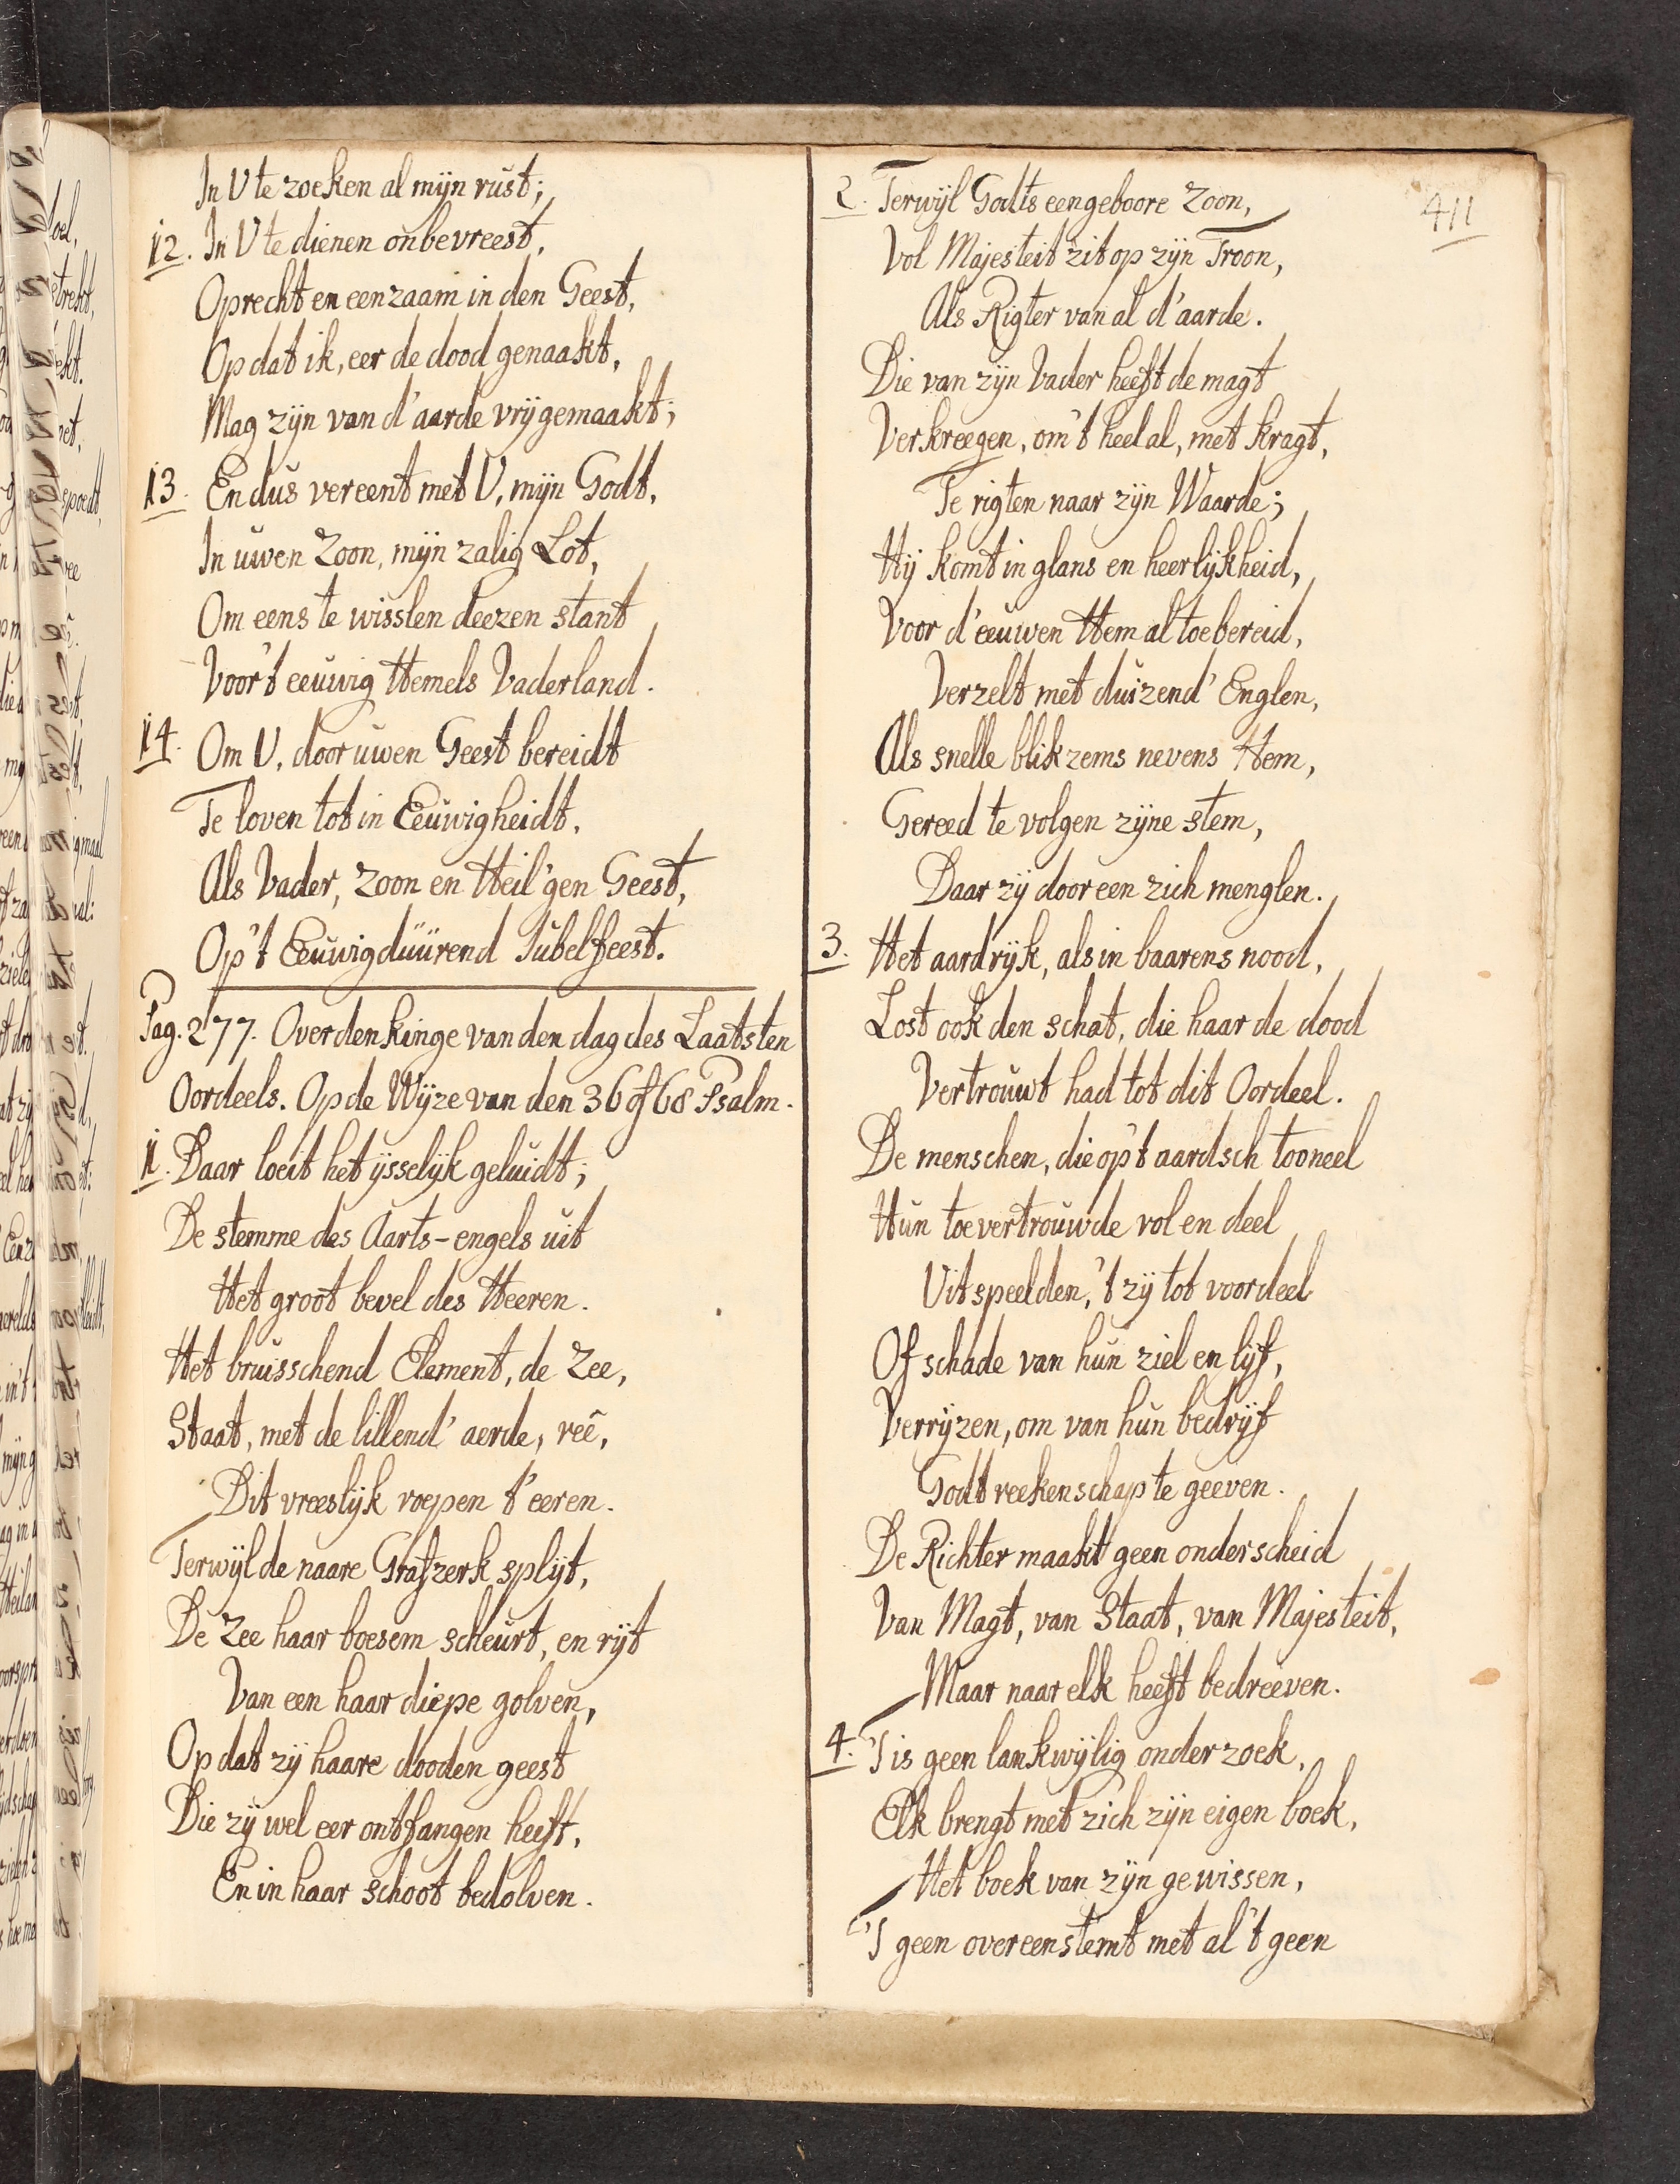 In U te zoeken al mijn rust;
12. In U te dienen onbevreest,
Oprecht en eenzaam in den Geest,
Op dat ik, eer de dood genaakt,
Mag zijn van d'aarde vrij gemaakt;
13. En dus vereent met U, mijn Godt,
In uwen Zoon, mijn zalig Lot,
Om eens te wisslen deezen stant
Voor't eeuwig Hemels Vaderland.
14. Om U, door uwen Geest bereidt
Te loven tot in Eeuwigheidt,
Als Vader, Zoon en Heil'gen Geest,
Op't Eeuwigdüürend Jubelfeest.
Pag. 277. Overdenkinge van den dag des Laatsten
Oordeels. Op de Wijze van den 36 of 68 Psalm.
1. Daar loeit het ijsselijk geluidt;
De stemme des Aarts-engels uit
Het groot bevel des Heeren.
Het bruisschend Element, de Zee,
Staat, met de lillend' aerde, reê,
Dit vreeslijk roepen t'eeren.
Terwijl de naare Grafzerk splijt,
De Zee haar boesem scheurt, en rijt
Van een haar diepe golven,
Op dat zij haare dooden geest
Die zij wel eer ontfangen heeft,
En in haar schoot bedolven.
411
2. Terwijl Godts eengeboore Zoon,
Vol Majesteit zit op zijn Troon,
Als Rigter van al d'aarde.
Die van zijn Vader heeft de magt
Verkreegen, om't heel al, met kragt,
Te rigten naar zijn Waarde;
Hij komt in glans en heerlijkheid,
Voor d'eeuwen Hem al toebereid,
Verzelt met duizend' Englen,
Als snelle blikzems nevens Hem,
Gereed te volgen zijne stem,
Daar zij door een zich menglen.
3. Het aardrijk, als in baarens nood,
Lost ook den schat, die haar de dood
Vertrouwt had tot dit Oordeel.
De menschen, die op't aardsch tooneel
Hun toevertrouwde rol en deel
Uitspeelden, 't zij tot voordeel
Of schade van hun ziel en lijf,
Verrijzen, om van hun bedrijf
Godt reekenschap te geeven.
De Richter maakt geen onderscheid
Van Magt, van Staat, van Majesteit,
Maar naar elk heeft bedreeven.
4. 'T is geen lankwijlig onderzoek,
Elk brengt met zich zijn eigen boek,
Het boek van zijn gewissen,
'T geen overeenstemt met al 't geen